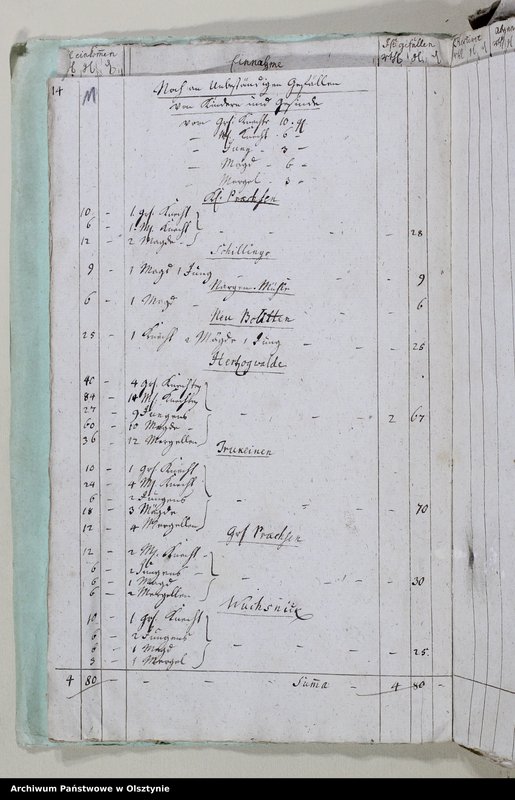 Einnahme
14
Noch an Unbeständigen Gefällen
von Kindern und Gesinde
von groß Knecht 10 gl
— M. Knecht - 6 -
— Jung - 3 -
— Magd - 6 -
— Mergel - 3 -
Kl. Prachsen
10 - 1 groß Knecht
6 - 1 M. Knecht
12 - 2 Mägde - - - - 28
Schillings
9 - 1 Magd 1 Jung - - - 9
Nargen Mühle
6 - 1 Magd - - - 6
Neu Bolitten
25 - 1 Knecht 2 Mägde 1 Jung - - - 25
Hertzogwalde
40 - 4 groß Knechte
84 - 14 M. Knechte
27 - 9 Jungens - - - 2 67
60 - 10 Mägde
36 - 12 Mergellen
10 - 1 groß Knecht
24 - 4 M. Knecht
6 - 2 Jungens
18 - 3 Mägde - - - 70
12 - 4 Mergellen
Groß Prachsen
12 - 2 M. Knecht
6 - 2 Jungens
6 - 1 Magd - - - 30
6 - 2 Mergellen
Wachsnick
10 - 1 groß Knecht
6 - 2 Jungens
6 - 1 Magd - - - 25
3 - 1 Mergel
4 80 - - - Summa - 4 80 -
Archiwum Państwowe w Olsztynie